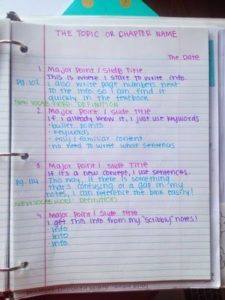 THE TOPIC OR CHAPTER NAME
The Date
1. Major Point / Slide Title
This is where I start to write info.
pg. 102 I also write page numbers next
to the info so I can find it
quickly in the textbook
NEW VOCAB WORD: DEFINITION
2. Major Point / Slide Title
If I already know it, I just use keywords
- bullet points
- keywords
- easy / familiar content
- no need to write what sentences
3. Major Point / Slide Title
If it's a new concept, I use sentences.
This way, if there is something
pg. 114 that's confusing or a gap in my
notes, I can reference the book easily!
NEW VOCAB WORD: DEFINITION
4. Major Point / Slide Title
I get this info from my "scribbly" notes!
info
info
info